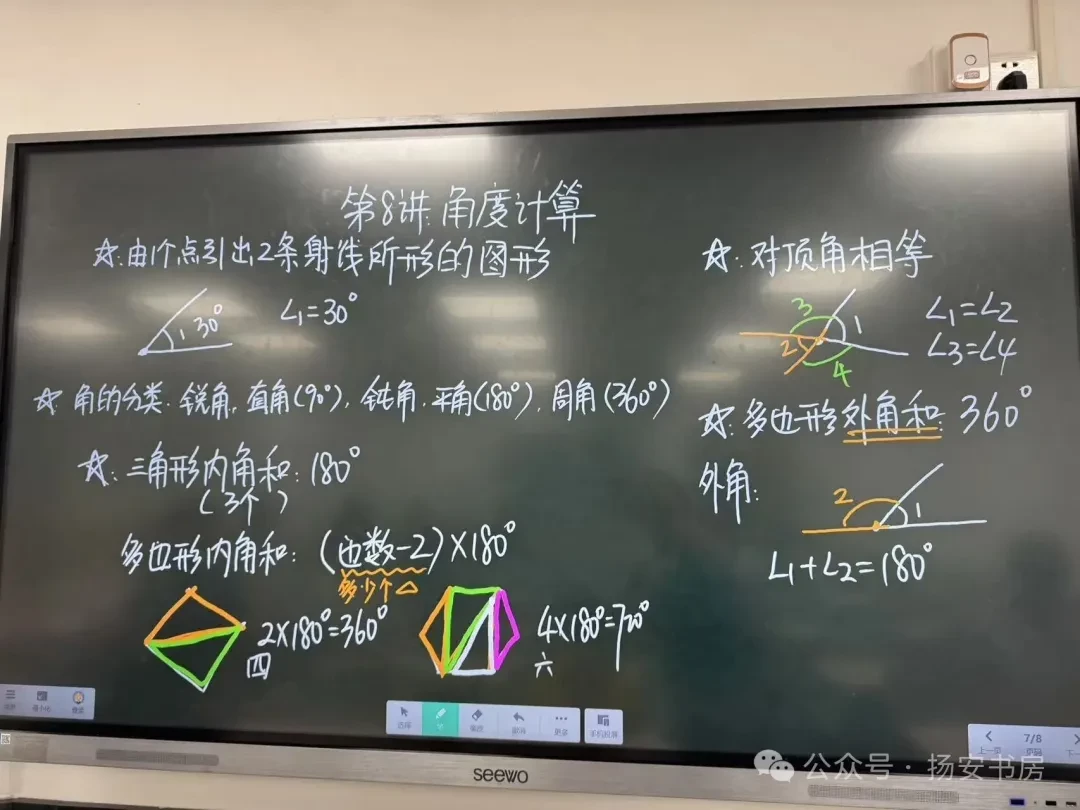 第8讲:角度计算
☆:由1个点引出2条射线所形的图形
1 30°
∠1=30°
☆ 角的分类:锐角,直角(90°),钝角,平角(180°),周角(360°)
☆:三角形内角和:180°
(3个)
多边形内角和:(边数-2)×180°
多少个△
2×180°=360°
四
4×180°=720°
六
☆:对顶角相等
3
1
2
4
∠1=∠2
∠3=∠4
☆:多边形外角和:360°
外角:
2
1
∠1+∠2=180°
选择
更多
上一页
7/8
seewo
公众号·扬安书房